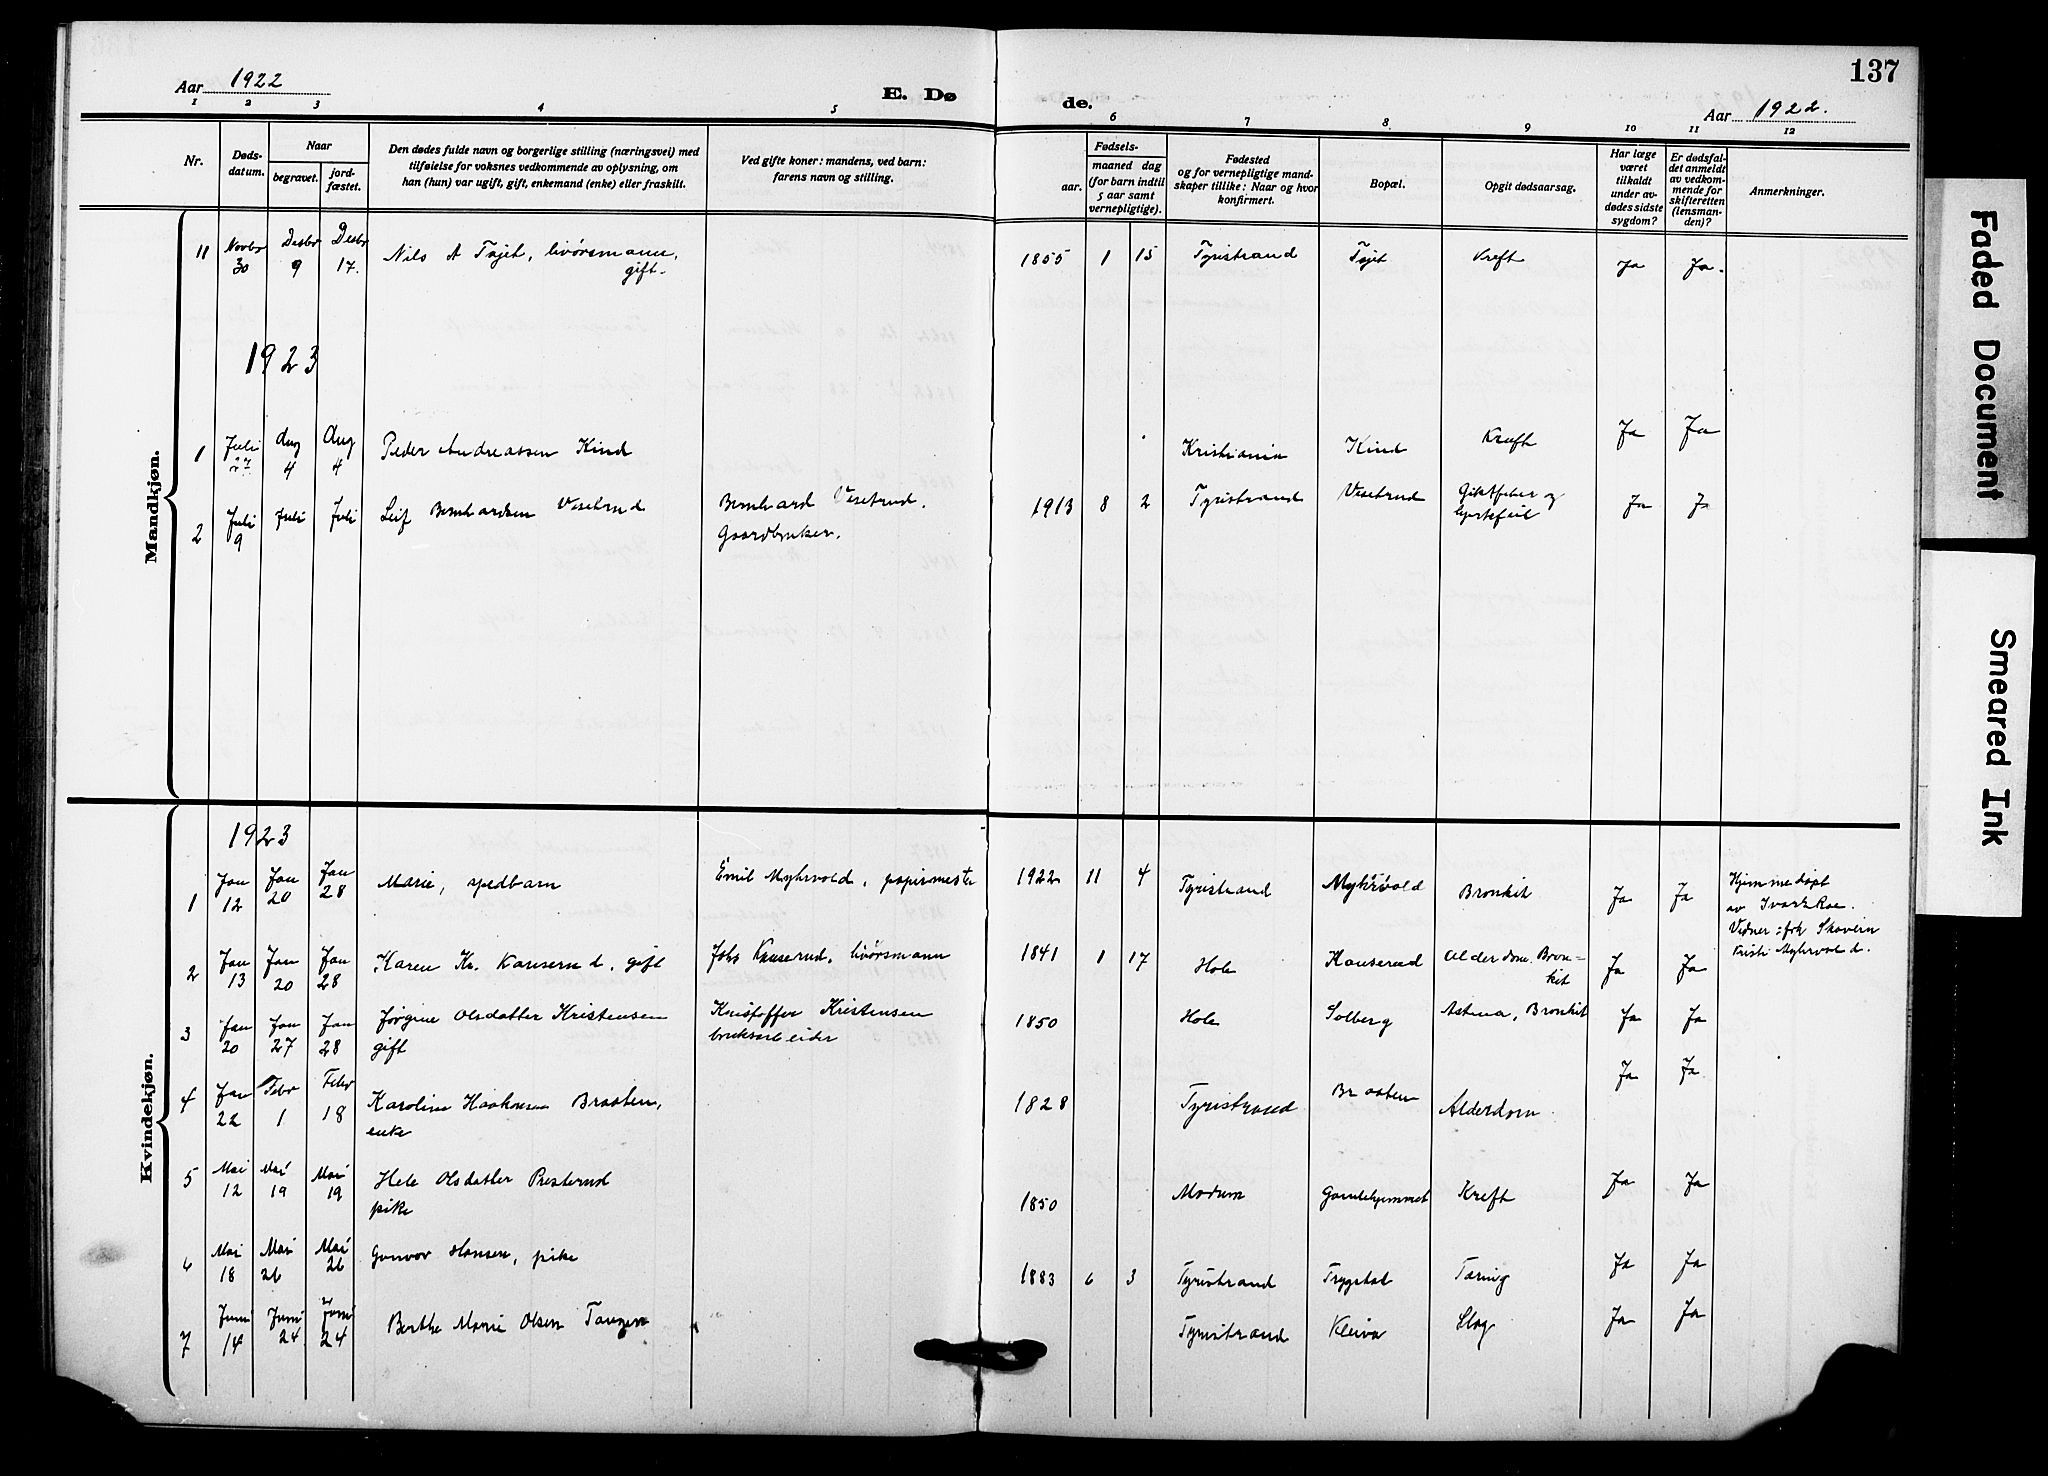 137
Aar 1922
E. Dø de.
Aar 1922.
1 2 3 4 5 6 7 8 9 10 11 12
Nr.
Døds-
datum.
Naar
begravet.
jord-
fæstet.
Den dødes fulde navn og borgerlige stilling (næringsvei) med
tilføielse for voksnes vedkommende av oplysning, om
han (hun) var ugift, gift, enkemand (enke) eller fraskilt.
Ved gifte koner: mandens, ved barn:
farens navn og stilling.
Fødsels-
aar. maaned dag
(for barn indtil
5 aar samt
vernepligtige).
Fødested
og for vernepligtige mand-
skaper tillike: Naar og hvor
konfirmert.
Bopæl.
Opgit dødsaarsag.
Har læge
været
tilkaldt
under av-
dødes sidste
sygdom?
Er dødsfal-
det anmeldt
av vedkom-
mende for
skifteretten
(lensman-
den)?
Anmerkninger.
Mandkjøn.
11 Novbr 30 Desbr 9 Desbr 17. Nils A Tsjet, livørsmann,
gift. 1855 1 15 Tyristrand Tsjet Kreft Ja Ja.
1923
1 Juli 27 Aug 4 Aug 4 Peder Andreassen Kind Kristiania Kind Kreft Ja Ja
2 Juli 9 Juli Juli Leif Bernhardsen Vesetrud Bernhard Vesetrud,
Gaardbruker. 1913 8 2 Tyristrand Vesetrud Giktfeber og
hjertefeil Ja J
Kvindekjøn.
1923
1 Jan 12 Jan 20 Jan 28 Marie, spedbarn Emil Myhrvold, papirmester 1922 11 4 Tyristrand Myhrvold Bronkit Ja Ja Hjemmedøpt
av Ivar E Roe.
Vidner: frk Skoverin
Kristi Myhrvold.
2 Jan 13 Jan 20 Jan 28 Karen Kr. Kauserud, gift Johs Kauserud, livørsmann 1841 1 17 Hole Kauserud Alderdom. Bron-
kit Ja Ja
3 Jan 20 Jan 27 Jan 28 Jørgine Olsdatter Kristensen
gift Kristoffer Kristensen
bruksarbeider 1850 Hole Solberg Astma, Bronkit Ja Ja
4 Jan 22 Febr 1 Febr 18 Karoline Haakonsen Braaten,
enke 1828 Tyristrand Braaten Alderdom Ja Ja
5 Mai 12 Mai 19 Mai 19 Hele Olsdatter Presterud
pike 1850 Modum Gamlehjemmet Kreft Ja Ja
6 Mai 18 Mai 26 Mai 26 Gunvor Hansen, pike 1883 6 3 Tyristrand Trygstad Tæring Ja Ja
7 Juni 14 Juni 24 Juni 24 Berthe Marie Olsen Tangen Tyristrand Kleiva Slag Ja Ja
Faded Document
Smeared Ink